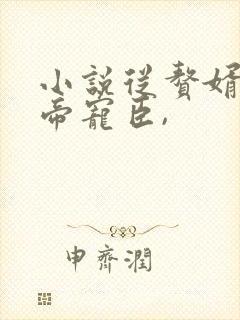 小說從贅婿
帝寵臣，
申齊潤